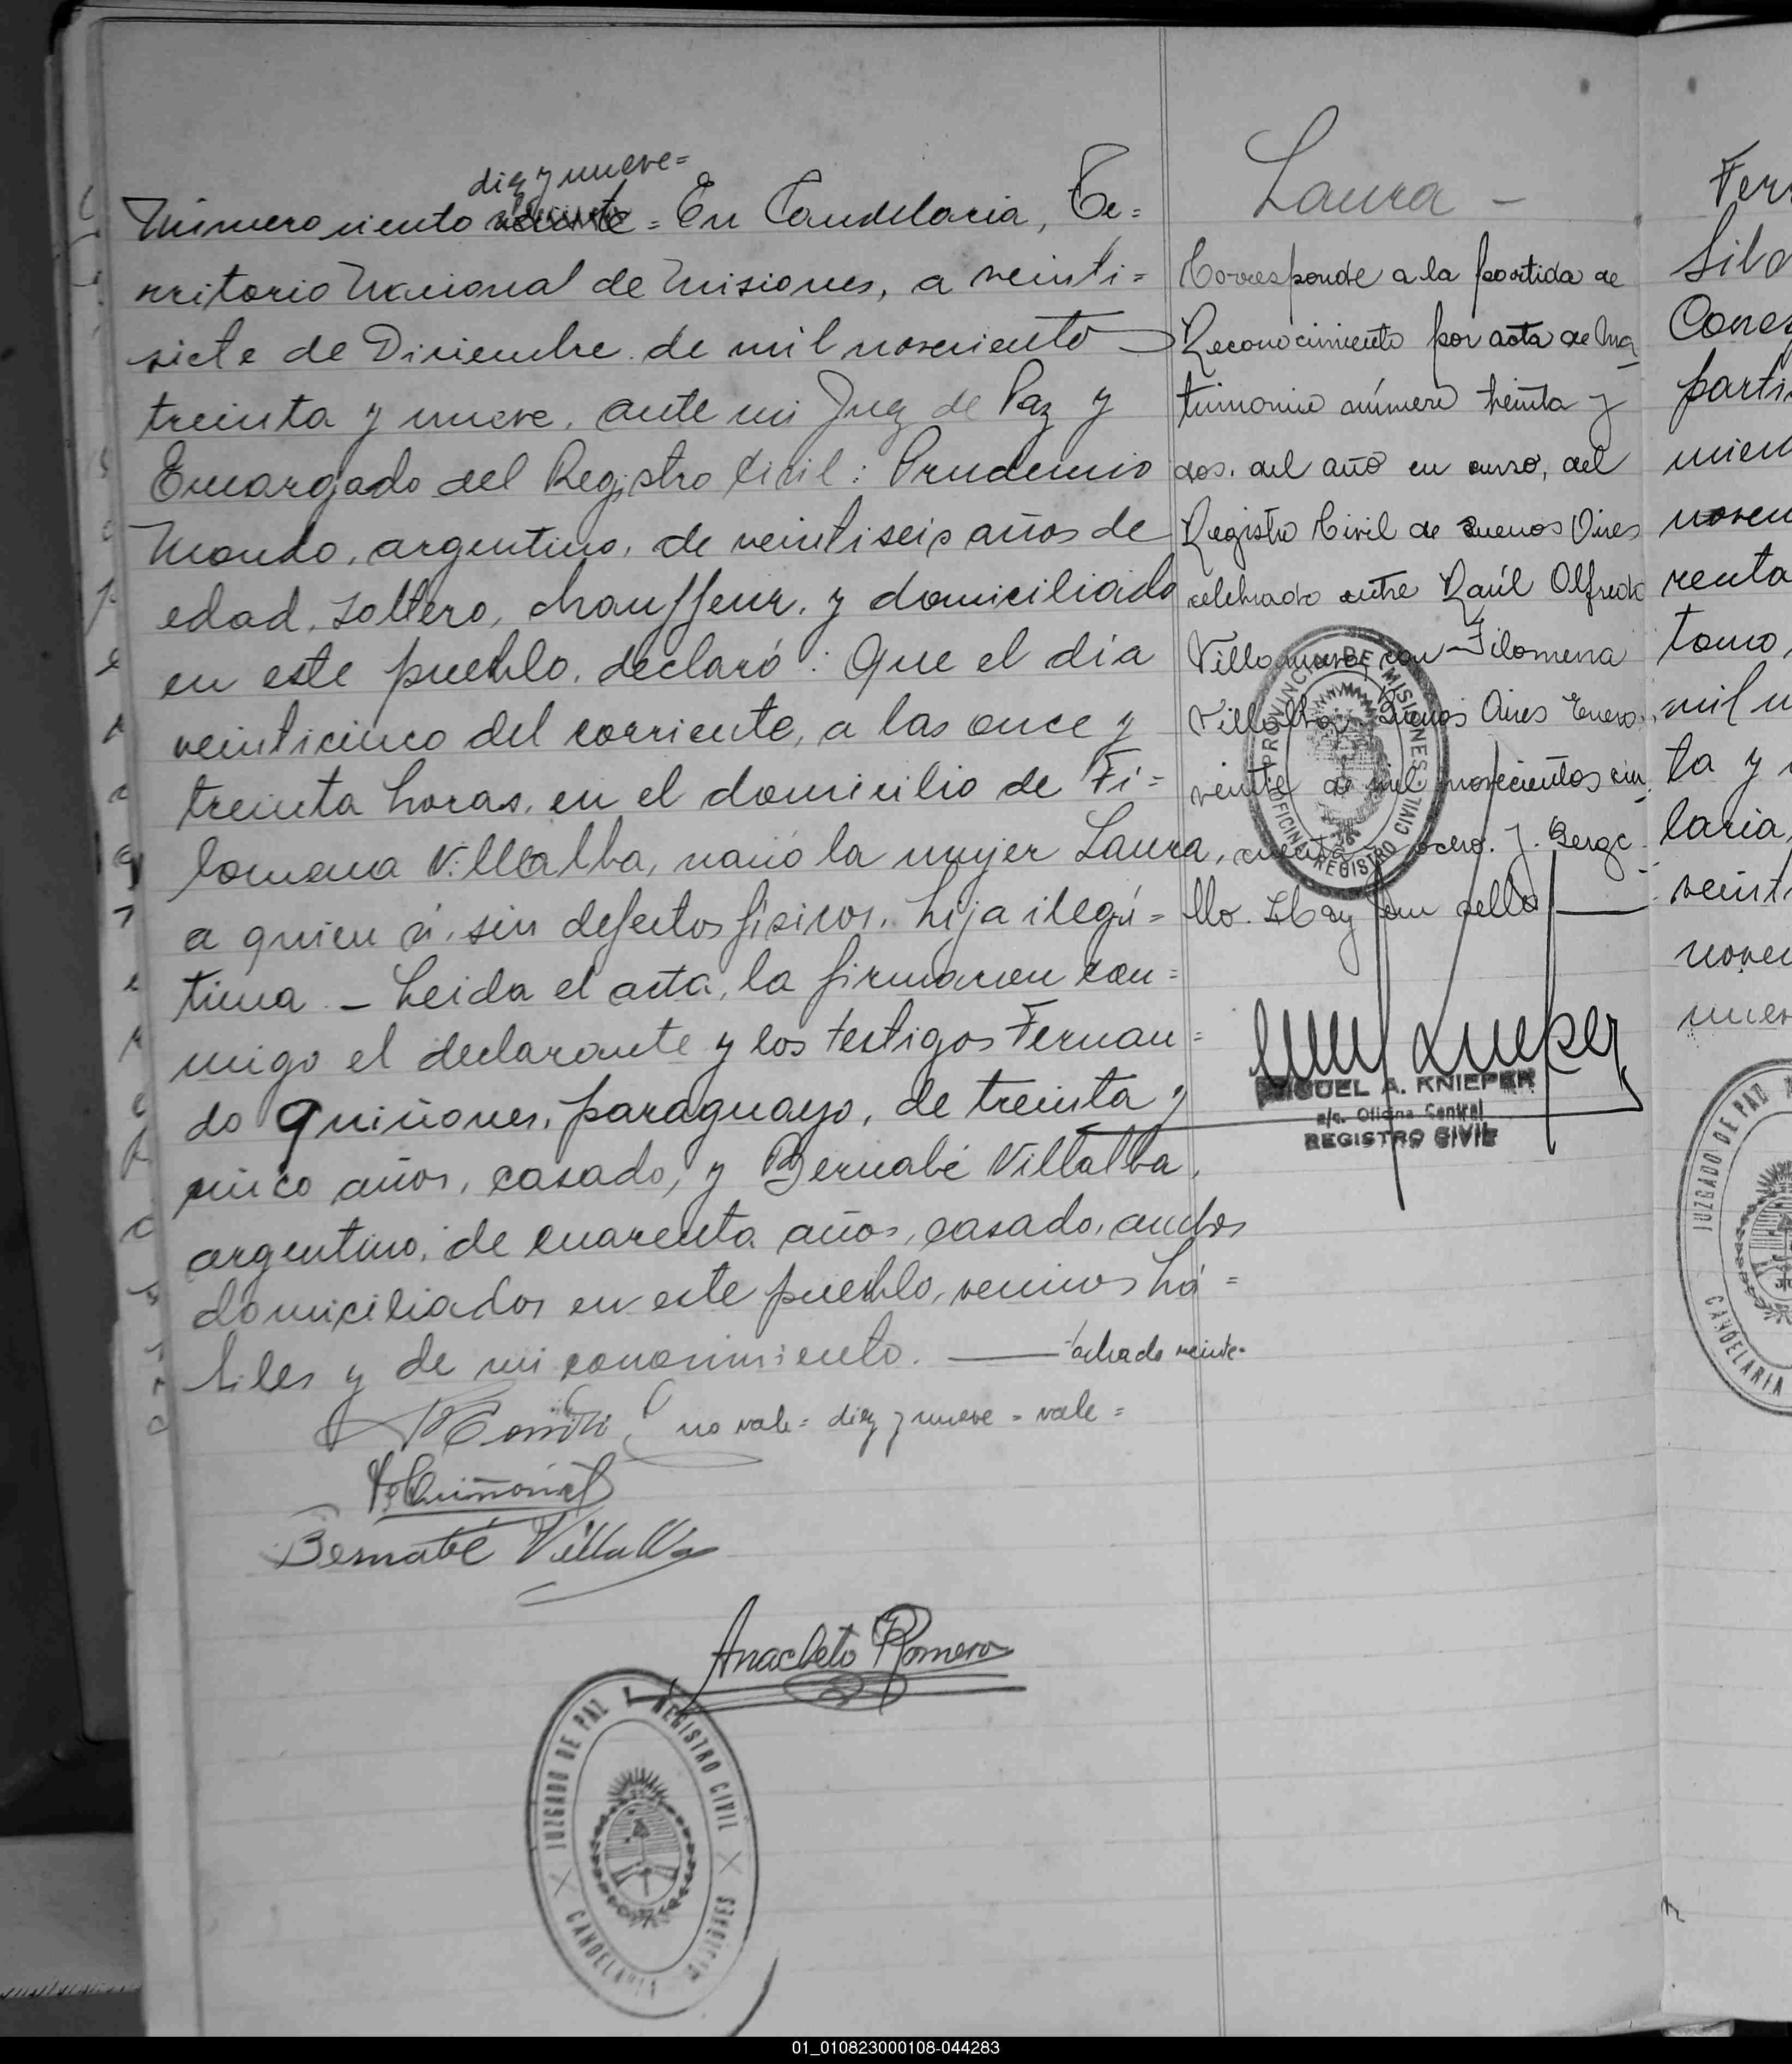 diez y nueve=
Número ciento veinte = En Candelaria, Te=
rritorio Nacional de Misiones, a veinti=
siete de Diciembre de mil noveciento
treinta y nueve, ante mi Juez de Paz y
Encargado del Registro Civil: Prudencio
, argentino, de veintiseis años de
edad, soltero, chauffeur, y domiciliado
en este pueblo, declaró: Que el día
veinticinco del corriente, a las once y
treinta horas, en el domicilio de Fi=
lomena Villalba, nació la mujer Laura,
a quien ví, sin defectos físicos, hija ilegí=
tima - Leida el acta, la firmaron con=
migo el declarante y los testigos Fernan=
do Quiñones, paraguayo, de treinta y
cinco años, casado, y Bernabé Villalba,
argentino, de cuarenta años, casado, ambos
domiciliados en este pueblo, vecinos há=
biles y de mi conocimiento. — tachado veinte-
no vale= diez y nueve = vale =
Quiñonez
Bernabé Villalba
Anacleto Romero
JUZGADO DE PAZ Y REGISTRO CIVIL
CANDELARIA MISIONES
Laura -
Corresponde a la partida de
Reconocimiento por acta de Ma
trimonio número treinta y
dos. del año en curso, del
Registro Civil de Buenos Aires
celebrado entre Raúl Alfredo
con Filomena
Villalba, Buenos Aires Enero
veinte de mil novecientos cin
cuenta y cero. J. Berge
llo. Hay un sello
PROVINCIA DE MISIONES
OFICINA REGISTRO CIVIL
MIGUEL A. KNIEPER
a/c. Oficina Central
REGISTRO CIVIL
Fer
Silv
Corres
parti
mien
noven
renta
tomo,
mil n
ta y
laria,
veint
nove
nuev
JUZGADO DE PAZ
CANDELARIA
01_010823000108-044283